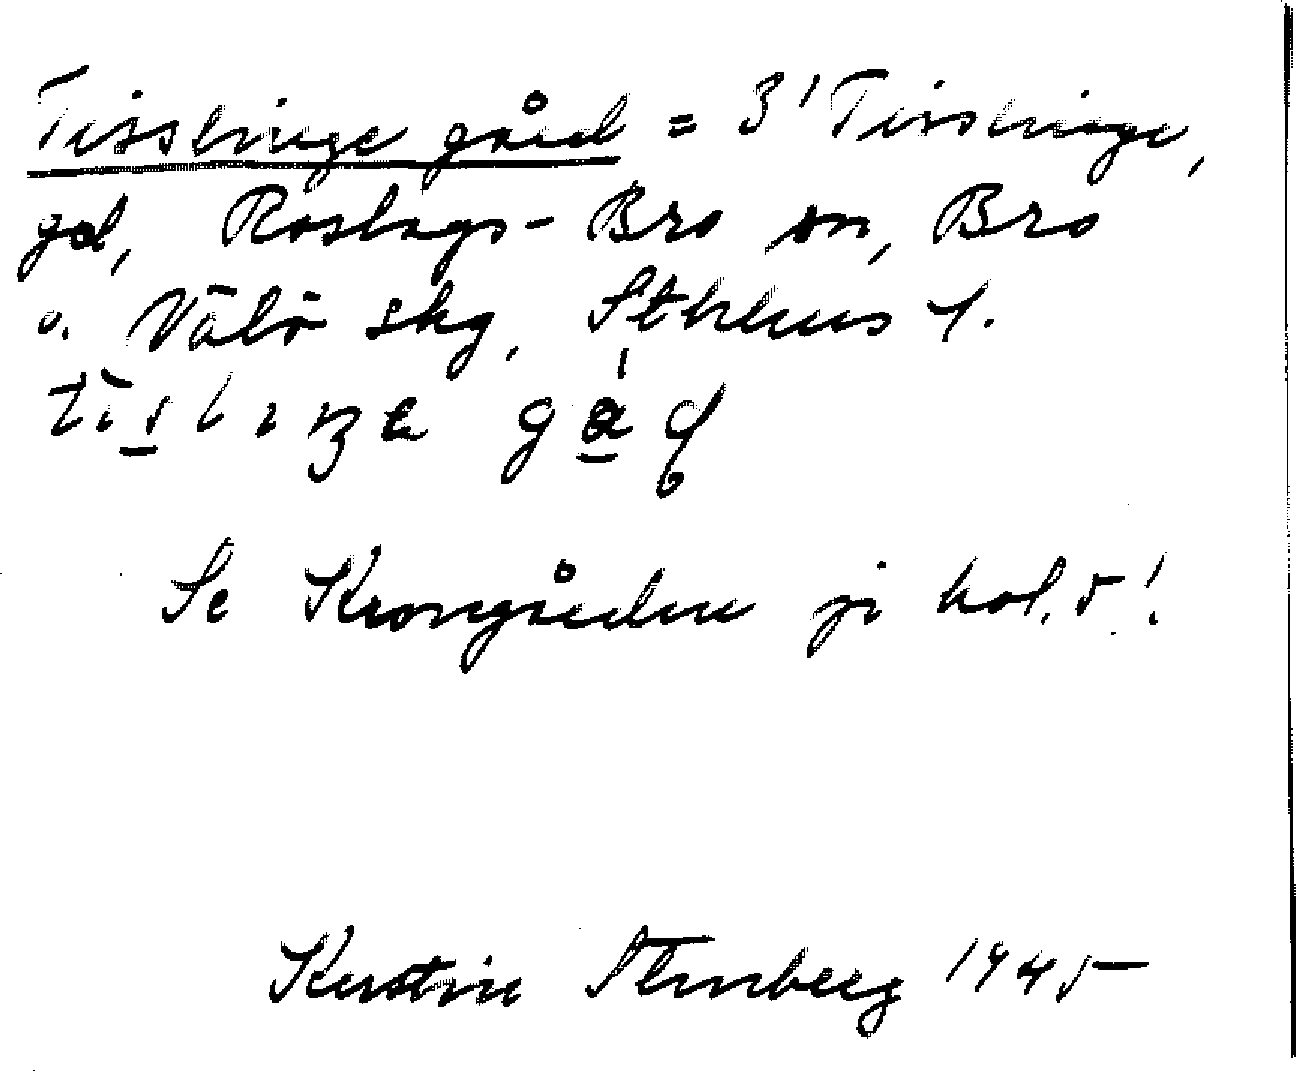 Tisslinge gård = 3' Tisslinge,
gd, Roslags-Bro sn, Bro
o. Vätö skg, Sthlms l.
Se Krongården på kol. 5!
Kerstin Stenberg 1945